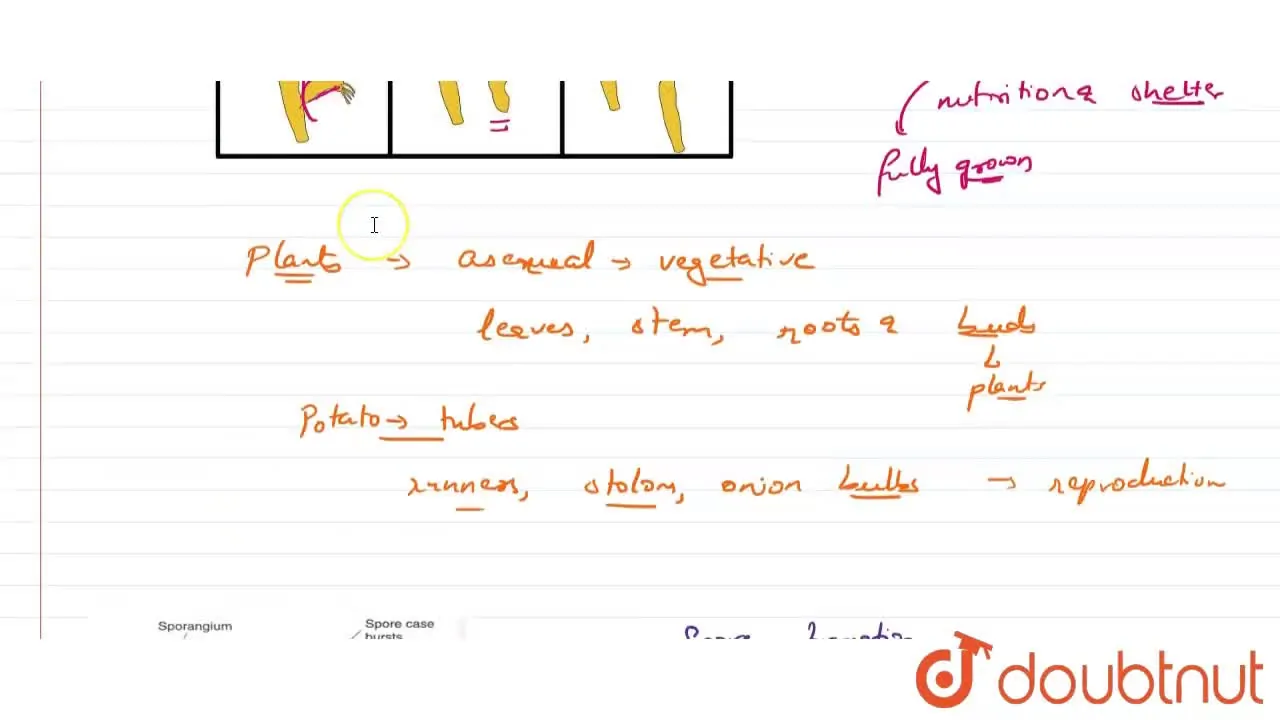 nutrition & shelter
fully grown
Plants → asexual → vegetative
leaves, stem, roots & buds
plants
Potato → tubers
runners, stolon, onion bulbs → reproduction
Sporangium
Spore case
bursts
Spore formation
doubtnut